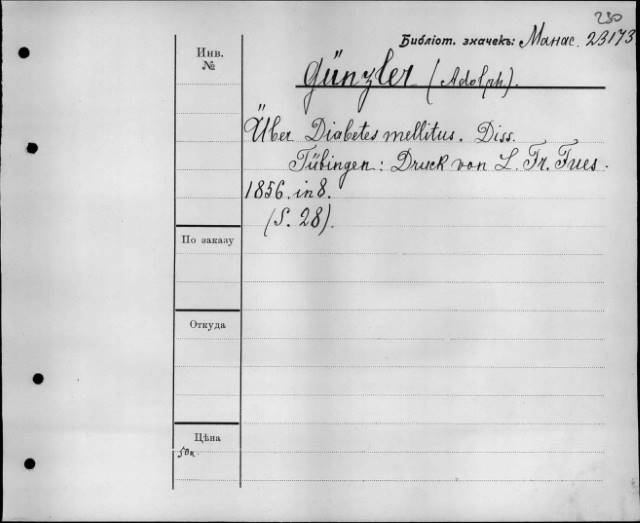 230
Библіот. значекъ: Манас. 23173
Инв.
№
Günzler (Adolph).
Über Diabetes mellitus. Diss.
Tübingen: Druck von L. Fr. Fues.
1856. in 8.
(S. 28).
По заказу
Откуда
Цѣна
50к.